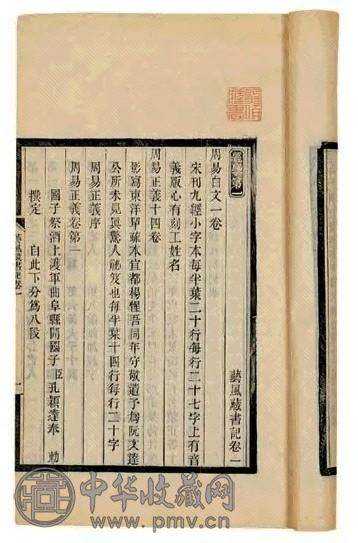 藝風藏書記卷一
經學第一
周易白文一卷
宋刊九經小字本每半葉二十行每行二十七字上有音
義版心有刻工姓名
周易正義十四卷
影寫東洋單疏本宜都楊惺吾同年守敬遺予為阮文達
公所未見真驚人祕笈也每半葉十四行每行二十字
周易正義序
周易正義卷第一
國子祭酒上護軍曲阜縣開國子臣孔穎達奉 勅
撰定 自此下分爲八段
藝風藏書記卷一
一
中华收藏网
www.pmv.cn